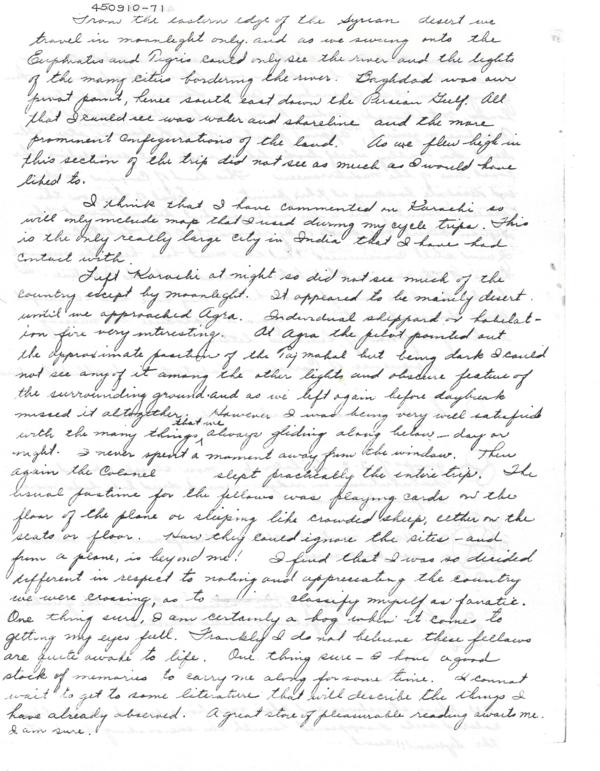 450910-71
From the eastern edge of the Syrian desert we
travel in moonlight only. and as we swung onto the
Euphratis and Tigris could only see the river and the lights
of the many cities bordering the river. Baghdad was our
pivot point, hence south east down the Persian Gulf. All
that I could see was water and shoreline and the more
prominent configurations of the land. As we flew high in
this section of the trip did not see as much as I would have
liked to.
I think that I have commented on Karachi so
will only include map that I used during my cycle trips. This
is the only really large city in India that I have had
contact with.
Left Karachi at night so did not see much of the
country except by moonlight. It appeared to be mainly desert
until we approached Agra. Individual sheppard or habitat-
ion fire very interesting. At Agra the pilot pointed out
the approximate position of the Taj mahal but being dark I could
not see any of it among the other lights and obscure feature of
the surrounding ground and as we left again before daybreak
missed it altogether. However I was being very well satisfied
with the many things that we always gliding along below – day or
night. I never spent a moment away from the window. Then
again the Colonel slept practically the entire trip. The
usual pastime for the fellows was playing cards on the
floor of the plane or sleeping like crowded sheep, either on the
seats or floor. How they could ignore the sites – and
from a plane, is beyond me! I find that I was so decided
different in respect to noting and appreciating the country
we were crossing, as to classify myself as fanatic.
One thing sure, I am certainly a hog when it comes to
getting my eyes full. Frankly I do not believe these fellows
are quite awake to life. One thing sure – I have a good
stock of memories to carry me along for some time. I cannot
wait to get to some literature that will describe the things I
have already observed. A great store of pleasurable reading awaits me.
I am sure.